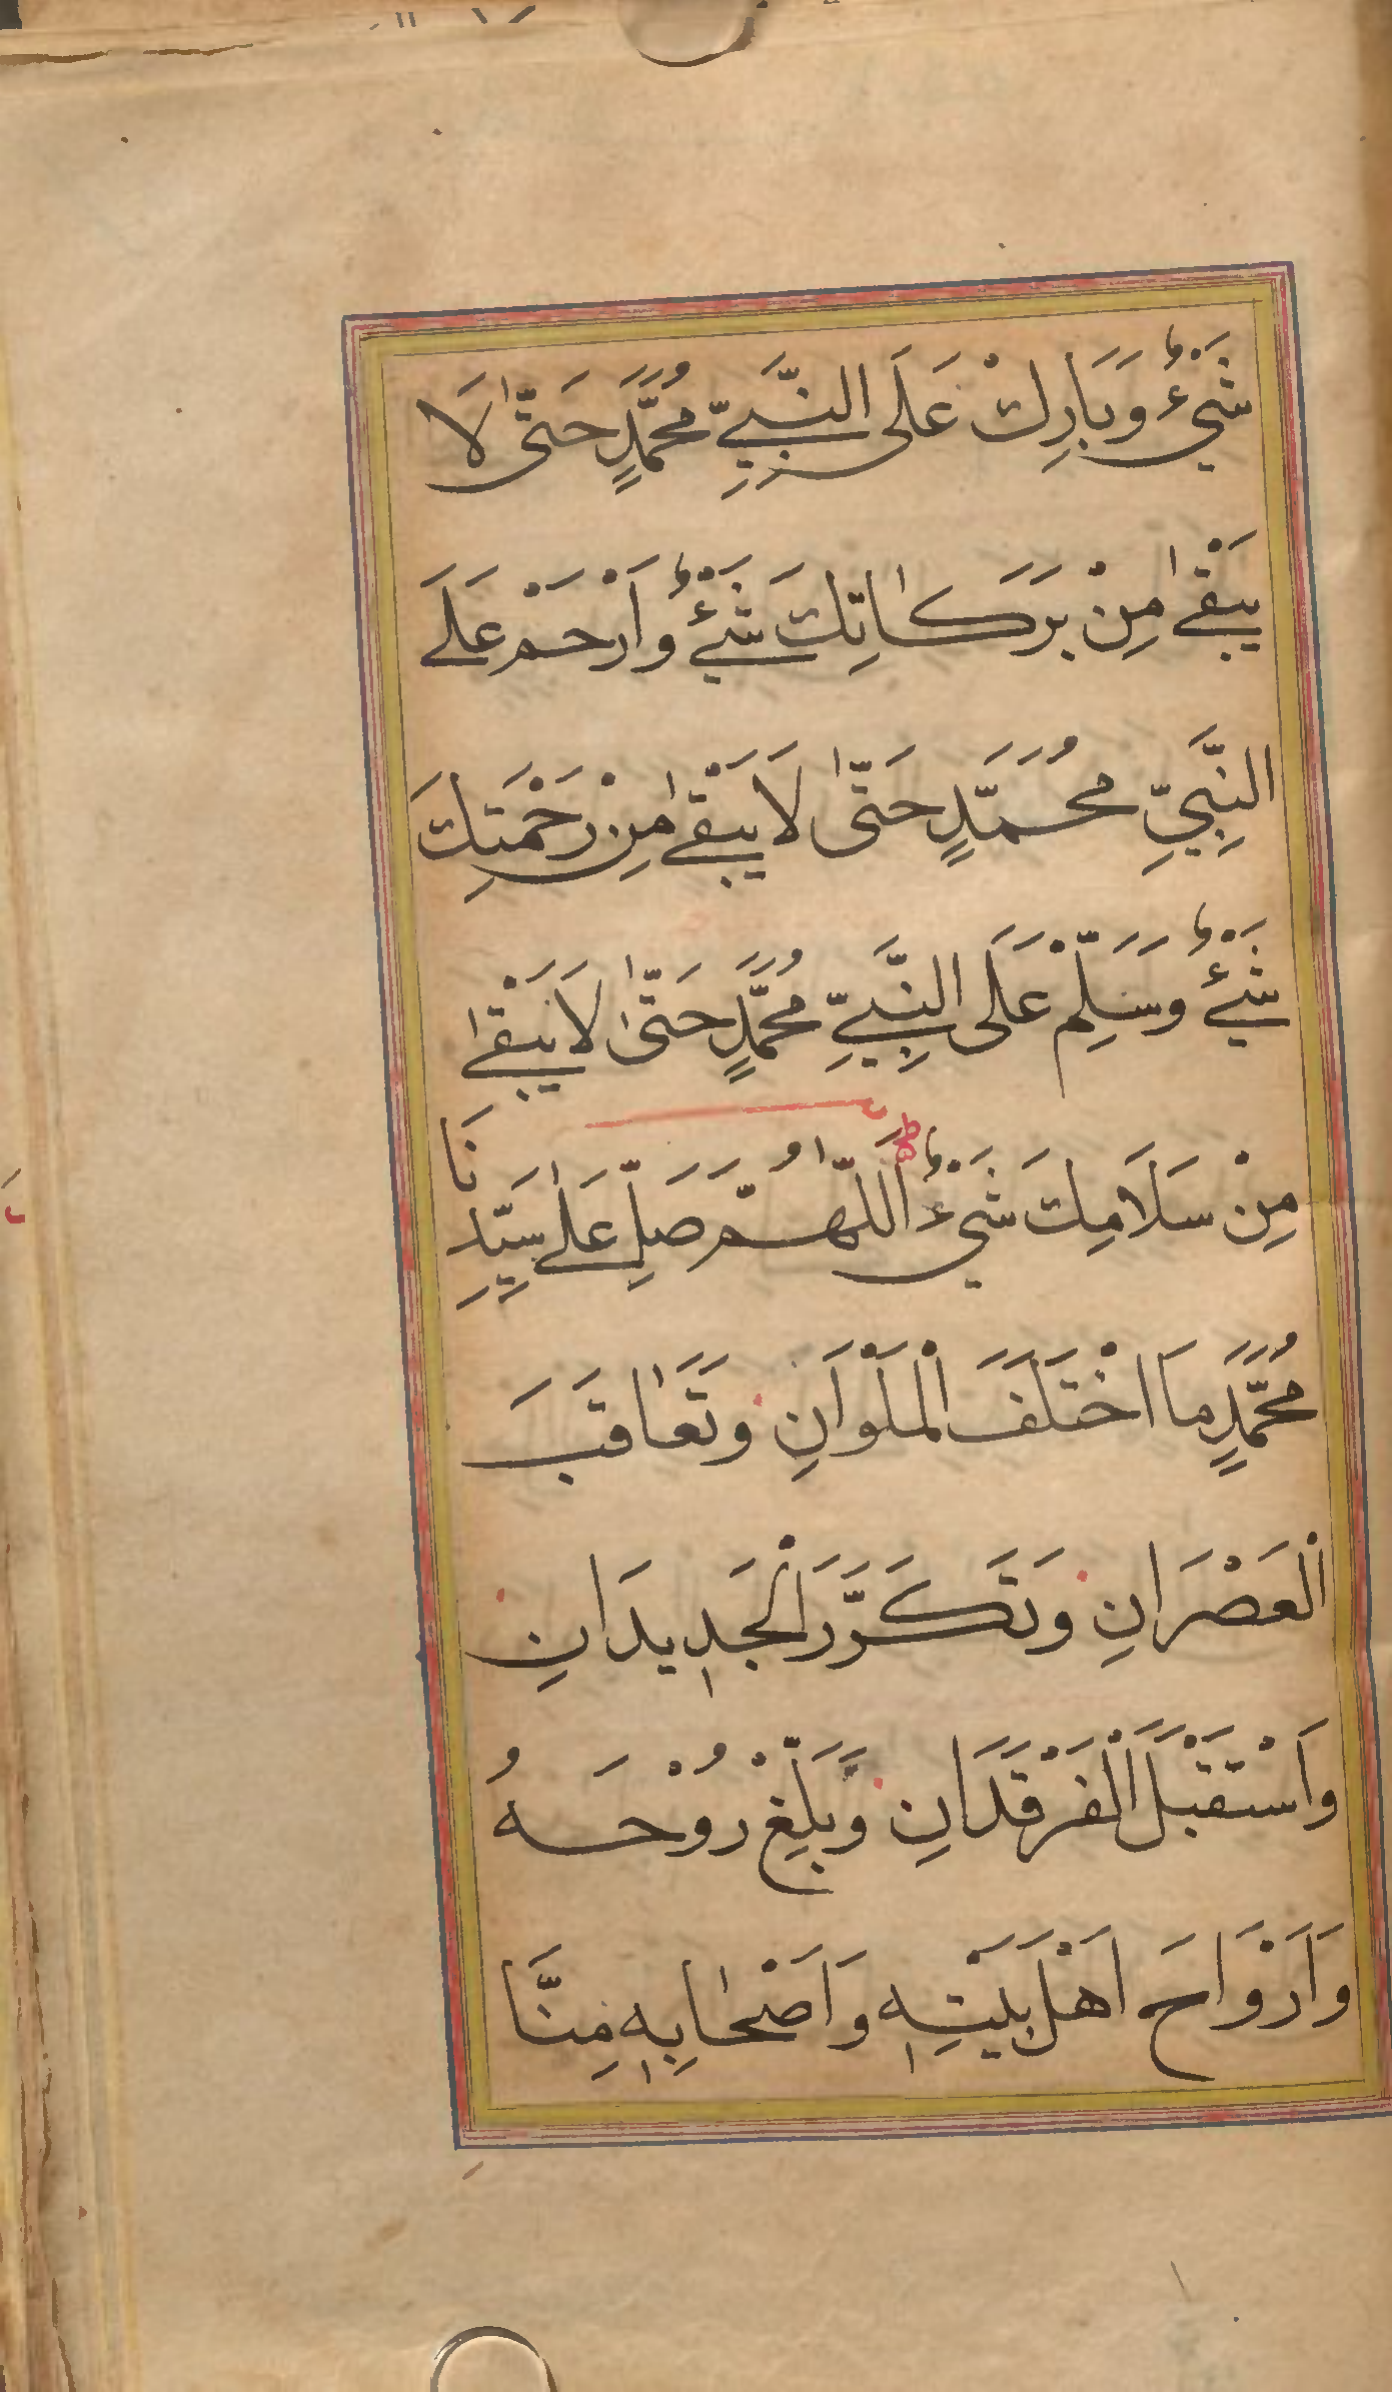 شَيْءٌ وَبَارِكْ عَلَى النَّبِيِّ مُحَمَّدٍ حَتّٰى لَا
يَبْقٰى مِنْ بَرَكَاتِكَ شَيْءٌ وَارْحَمْ عَلَى
النَّبِيِّ مُحَمَّدٍ حَتّٰى لَا يَبْقٰى مِنْ رَحْمَتِكَ
شَيْءٌ وَسَلِّمْ عَلَى النَّبِيِّ مُحَمَّدٍ حَتّٰى لَا يَبْقٰى
مِنْ سَلَامِكَ شَيْءٌ اَللّٰهُمَّ صَلِّ عَلٰى سَيِّدِنَا
مُحَمَّدٍ مَا اخْتَلَفَ الْمَلَوَانِ وَتَعَاقَبَ
الْعَصْرَانِ وَتَكَرَّرَ الْجَدِيدَانِ
وَاسْتَقْبَلَ الْفَرْقَدَانِ وَبَلِّغْ رُوْحَهُ
وَاَرْوَاحَ اَهْلِ بَيْتِهٖ وَاَصْحَابِهٖ مِنَّا